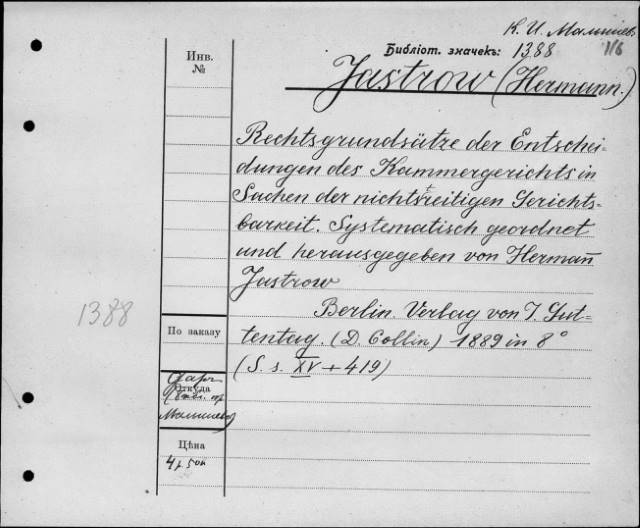 К. И. Малышев
Библіот. значекъ: 1388 1/6
Инв.
№
Jastrow (Hermann.)
Rechtsgrundsätze der Entschei-
dungen des Kammergerichts in
Sachen der nichtstreitigen Gerichts-
barkeit. Systematisch geordnet
und herausgegeben von Hermann
Jastrow
Berlin. Verlag von J. Gut-
tentag. (D. Collin) 1889 in 8°
(S. s. XV + 419)
1388
По заказу
Откуда
Малышева
Цѣна
4 р 50 к